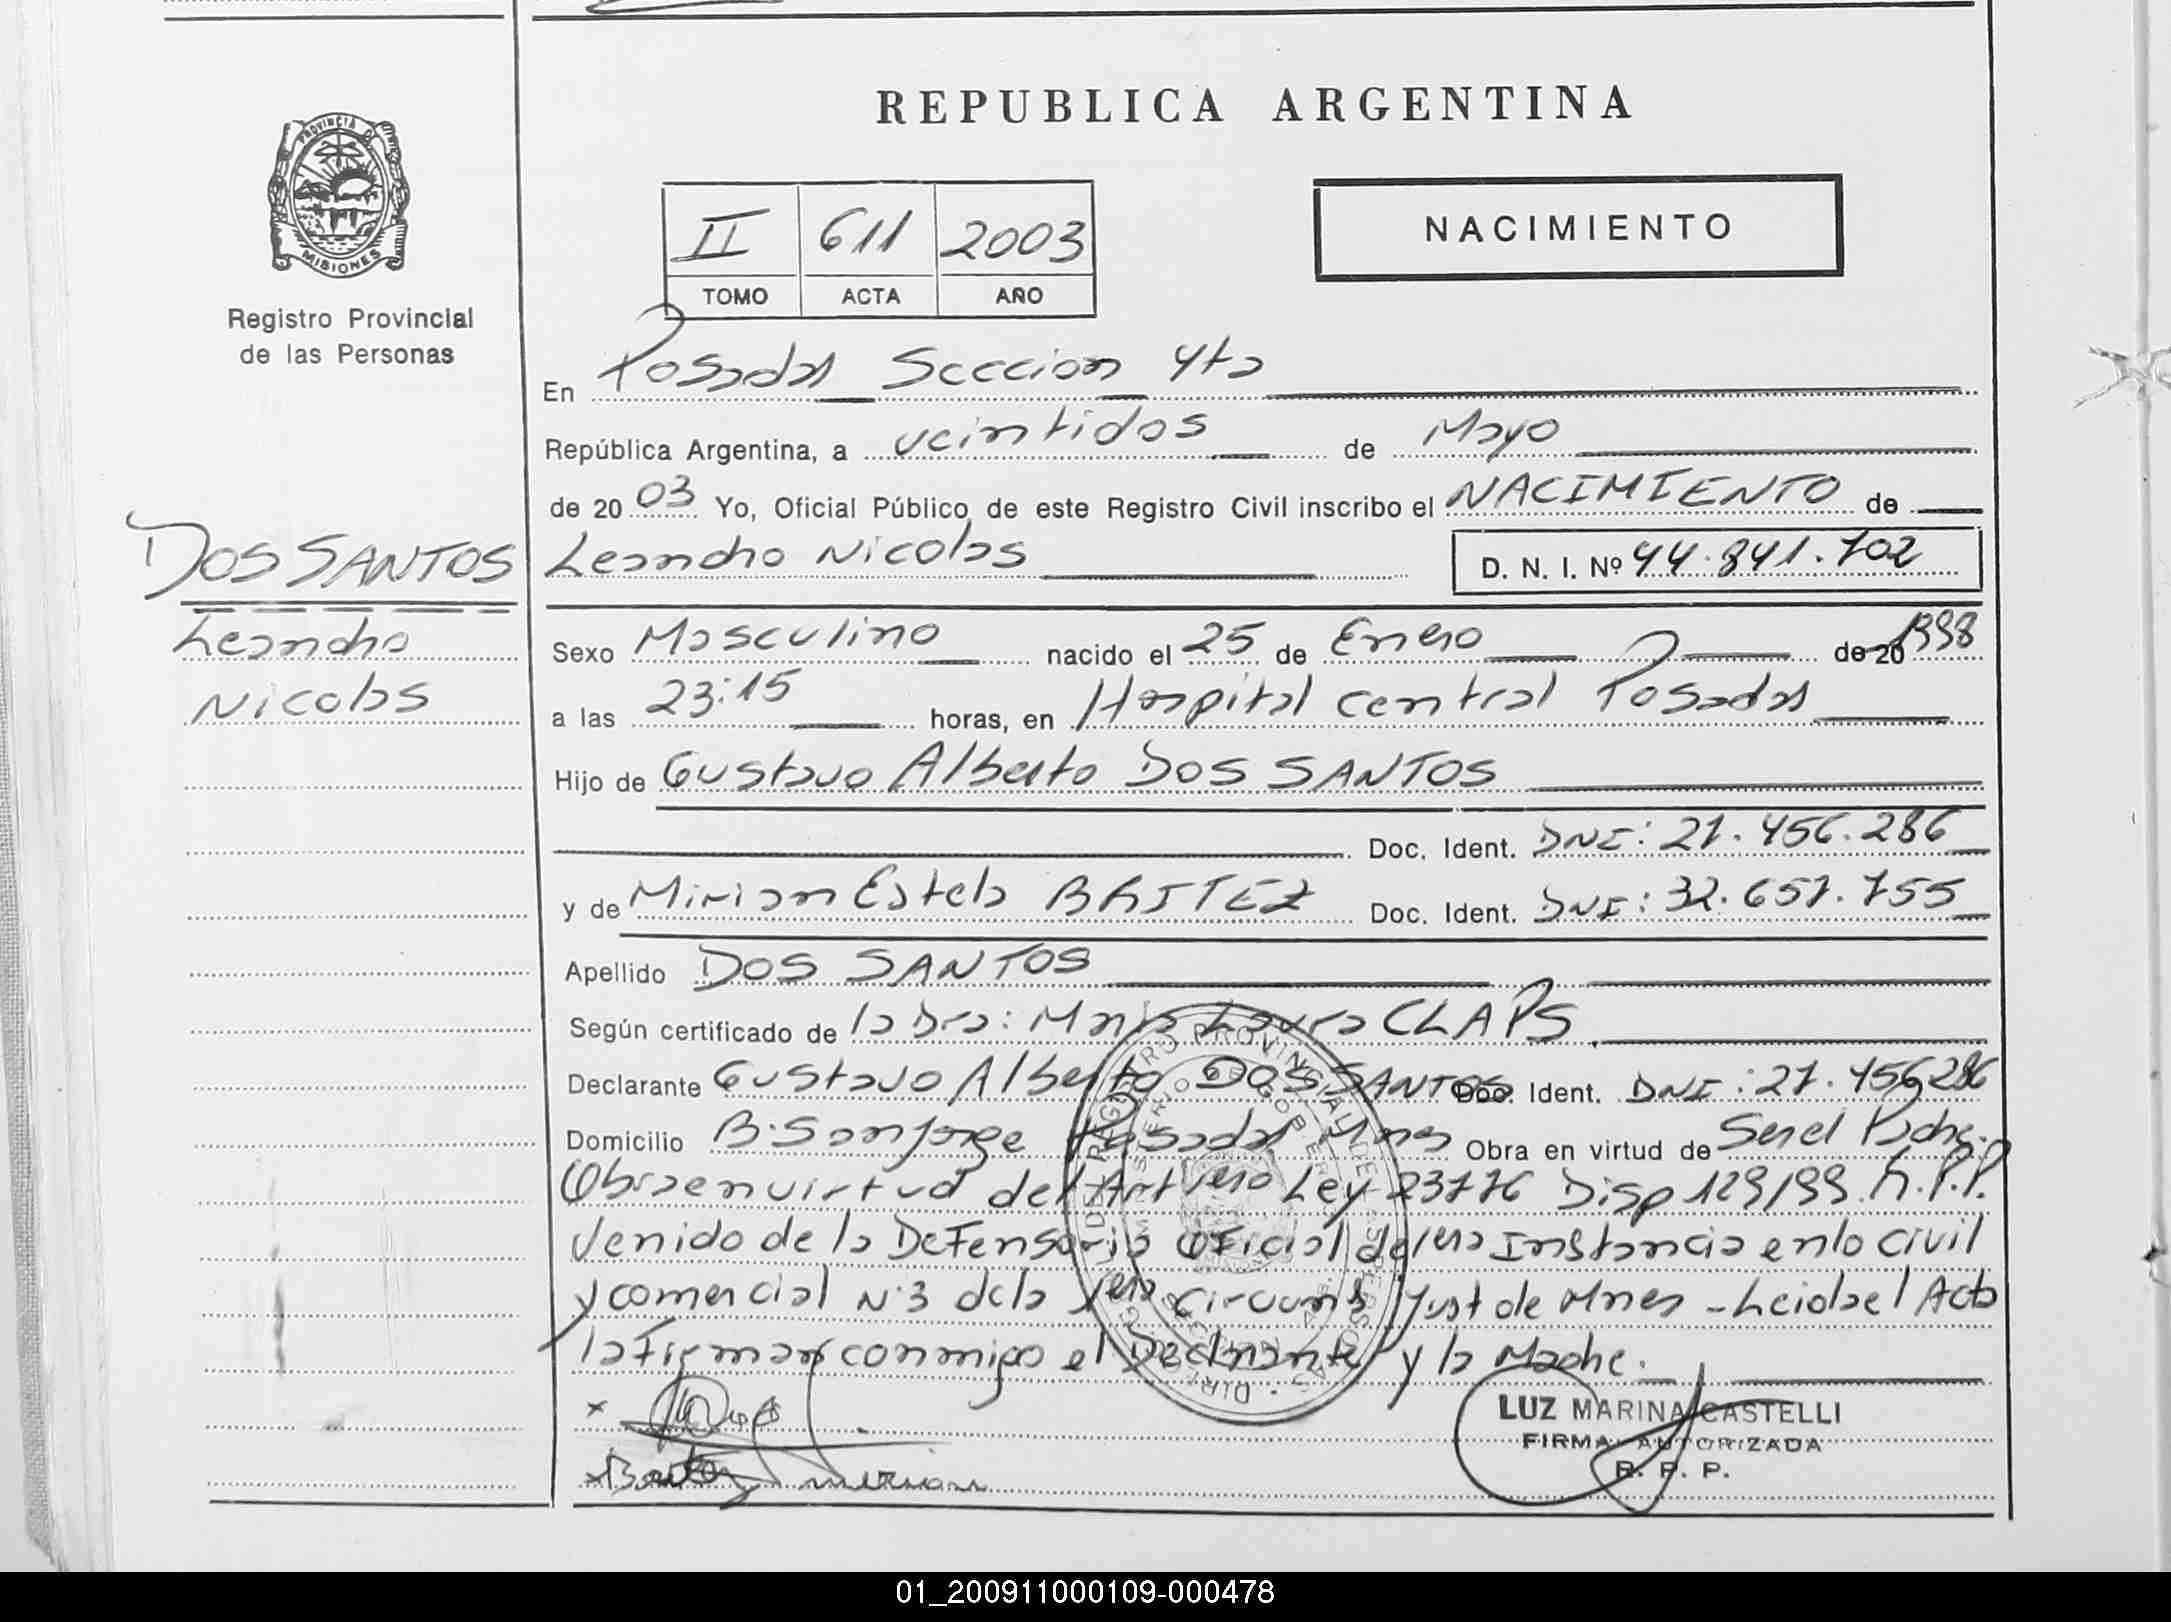 REPUBLICA ARGENTINA
PROVINCIA DE
MISIONES
Registro Provincial
de las Personas
II 611 2003
TOMO ACTA AÑO
NACIMIENTO
En Posadas Seccion 4ta
República Argentina, a veintidos de Mayo
de 20 03 Yo, Oficial Público de este Registro Civil inscribo el NACIMIENTO de
DOS SANTOS
Leandro Nicolas D. N. I. Nº 44.841.702
Leandro
Nicolas
Sexo Masculino nacido el 25 de Enero de 20 1998
a las 23:15 horas, en Hospital Central Posadas
Hijo de Gustavo Alberto DOS SANTOS
Doc. Ident. DNI: 21.456.286
y de Mirian Estela BRITEZ Doc. Ident. DNI: 32.651.755
Apellido DOS SANTOS
Según certificado de la Dra: Maria Laura CLAPS
Declarante Gustavo Alberto DOS SANTOS Doc. Ident. DNI: 21.456286
Domicilio B. San Jorge Posadas Mnes Obra en virtud de Ser el Padre.
Obra en virtud del Art 1ero Ley 23776 Disp 129/99 R.P.P.
Venido de la Defensoria Oficial de 1era Instancia en lo Civil
y comercial N°3 de la 1era Circuns Just de Mnes - Leida el Acta
la Firman conmigo el Declarante y la Madre.
LUZ MARINA CASTELLI
FIRMA AUTORIZADA
R. P. P.
Britez Mirian
01_200911000109-000478